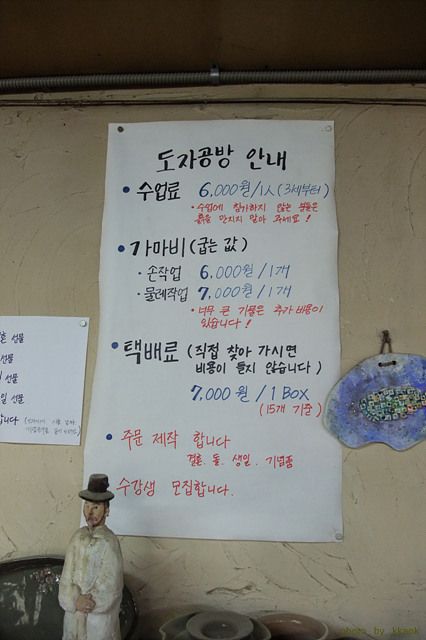 도자공방 안내
• 수업료 6,000원/1人 (3세부터)
• 수업에 참가하지 않는 분들은
흙을 만지지 말아 주세요!
• 가마비 (굽는 값)
• 손작업 6,000원/1개
• 물레작업 7,000원/1개
• 너무 큰 기물은 추가비용이
있습니다!
• 택배료 (직접 찾아 가시면
비용이 들지 않습니다)
7,000원/1 BOX
(15개 기준)
• 주문 제작 합니다
결혼. 돌. 생일. 기념품
• 수강생 모집합니다.
선물
선물
선물
일 선물
니다
photo by kkaok